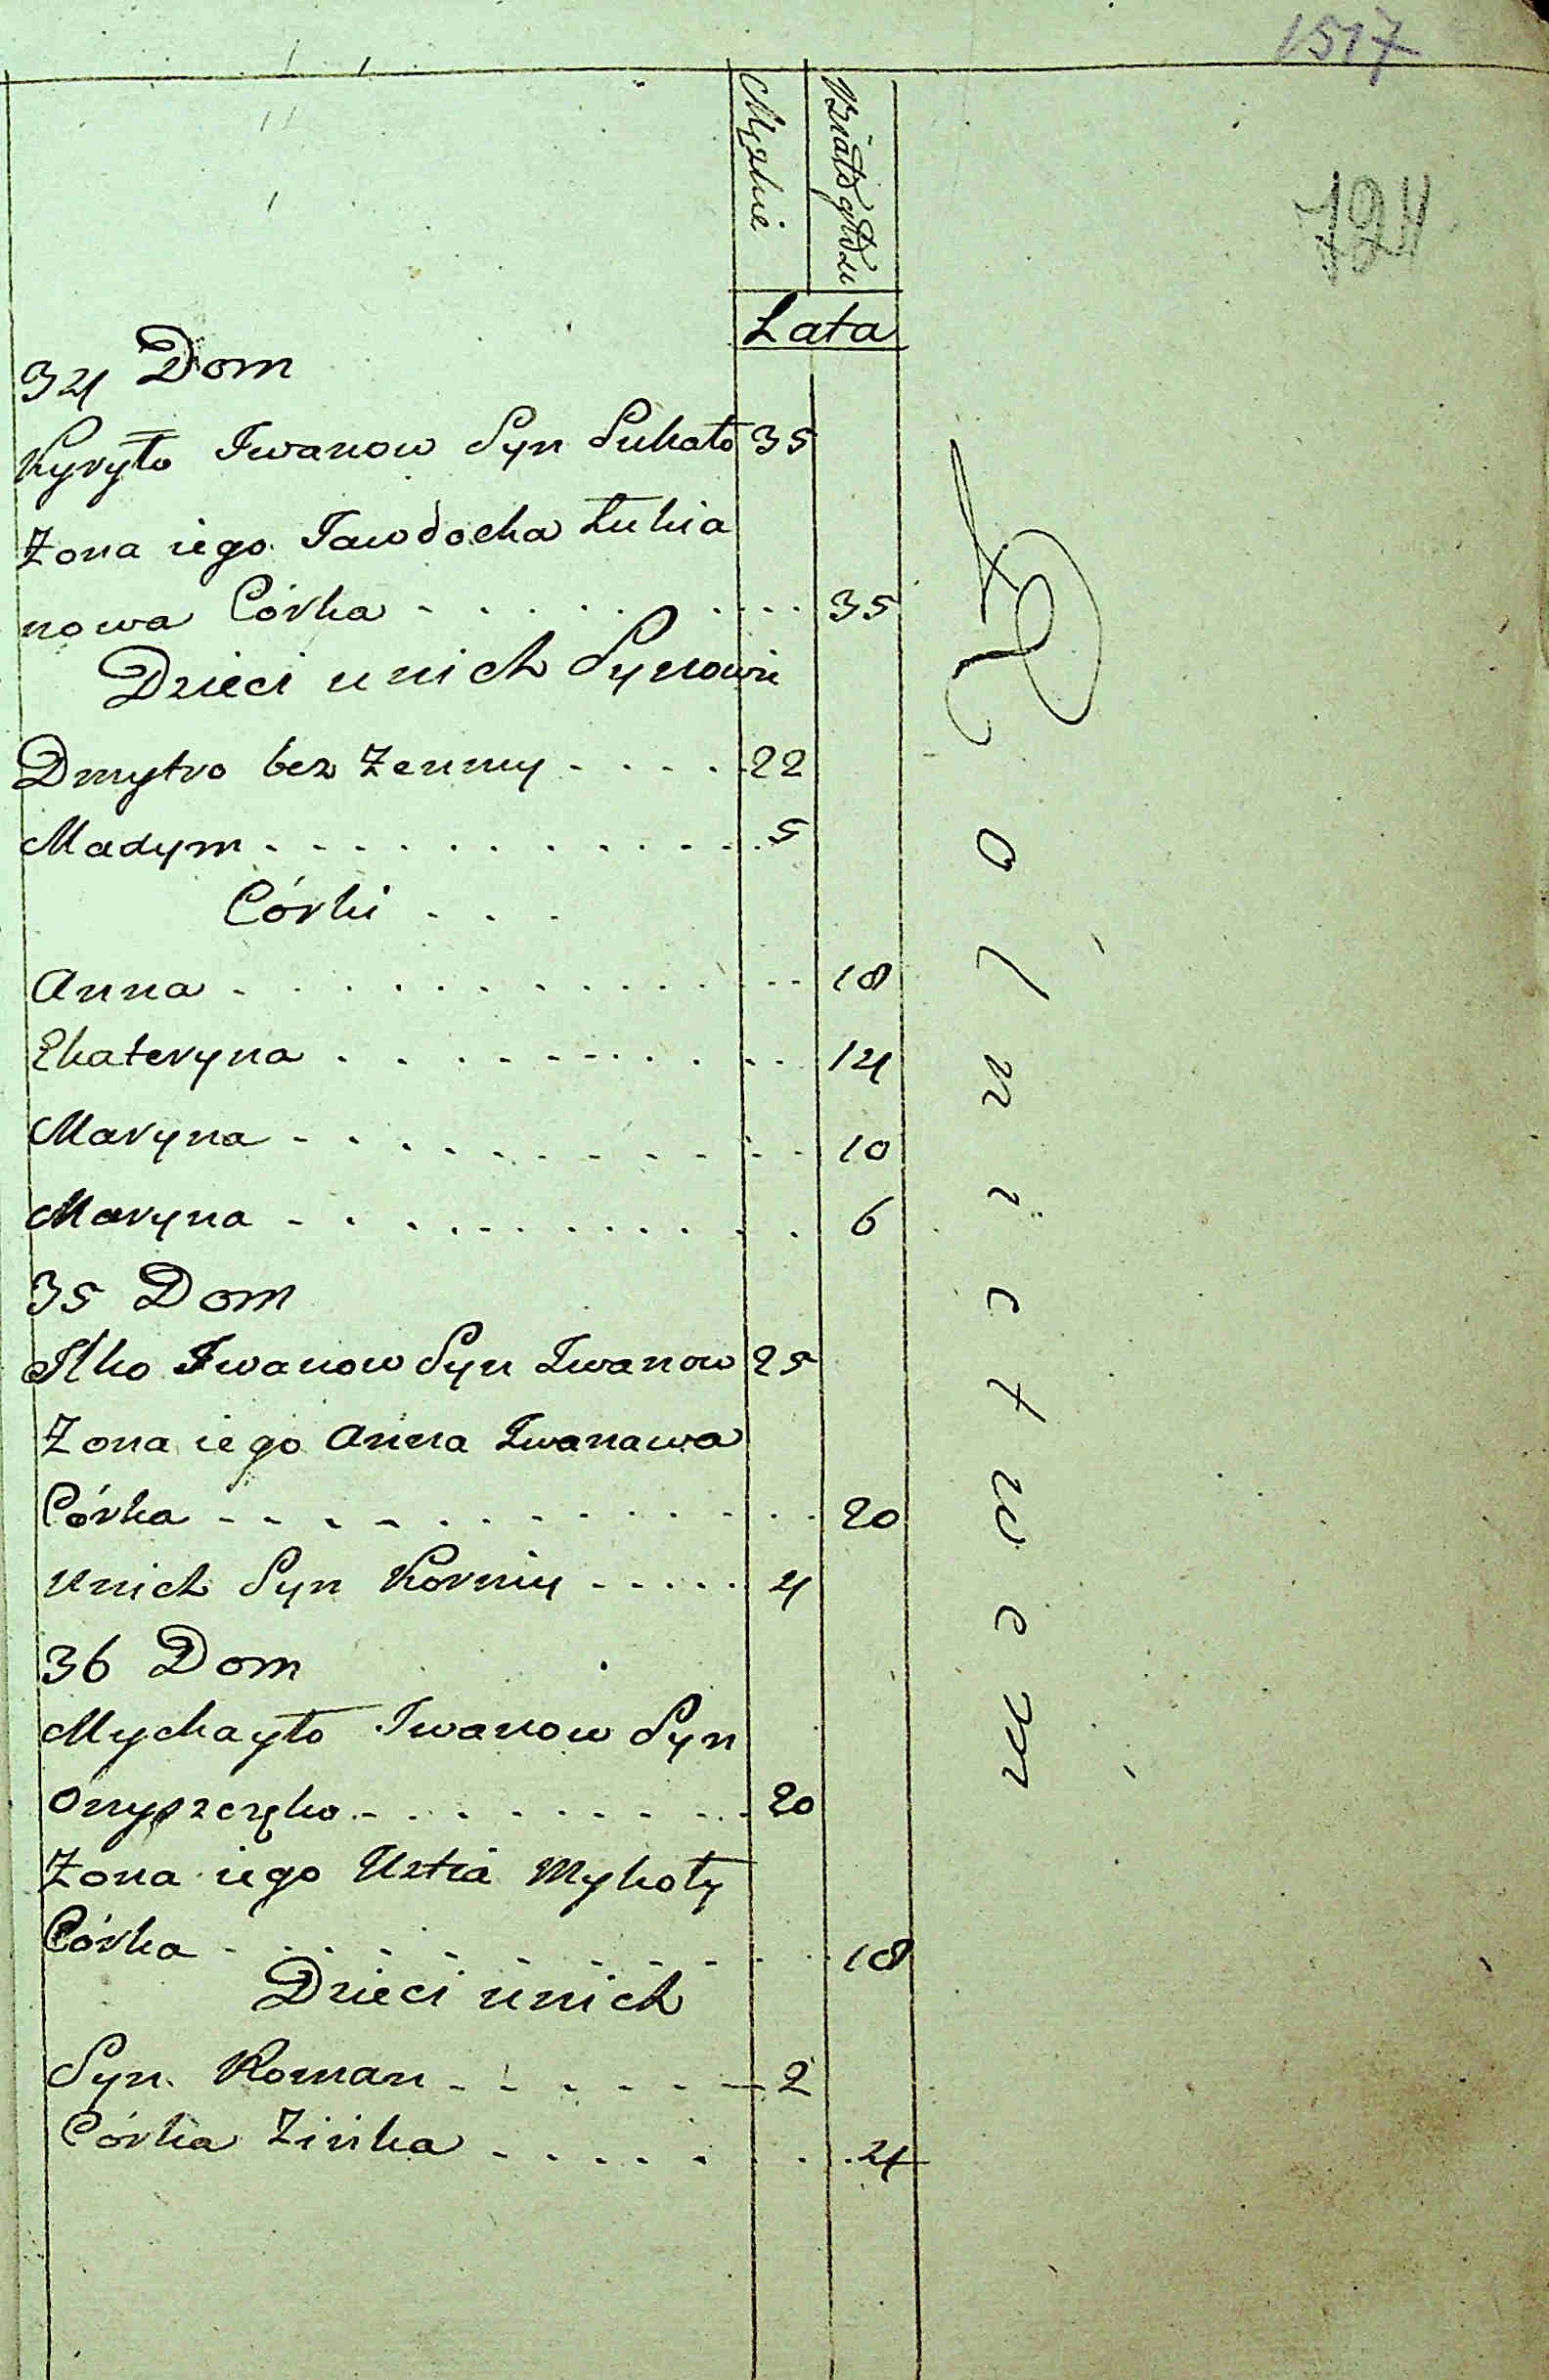 1517
724
Męzkie
Białogłów
Lata
34 Dom
Kyryło Iwanow Syn Sukało 35
Zona iego Jawdocha Łukia
nowa Córka - - - - - - - - 35
Dzieci u nich Synowie
Dmytro bez Zenny - - - - - 22
Madym - - - - - - - - - - - 5
Córki - - -
Anna - - - - - - - - - - - 18
Ekateryna - - - - - - - - - 14
Maryna - - - - - - - - - - 10
Maryna - - - - - - - - - - 6
35 Dom
Ilko Iwanow Syn Iwanow 25
Zona iego Anna Iwanawa
Córka - - - - - - - - - - - 20
Unich Syn Korniy - - - - - 4
36 Dom
Mychayło Iwanow Syn
Onyszczęko - - - - - - - - 20
Zona iego Ustia Mykoły
Córka - - - - - - - - - - - 18
Dzieci unich
Syn Roman - - - - - - 2
Córka Zińka - - - - - - - 4